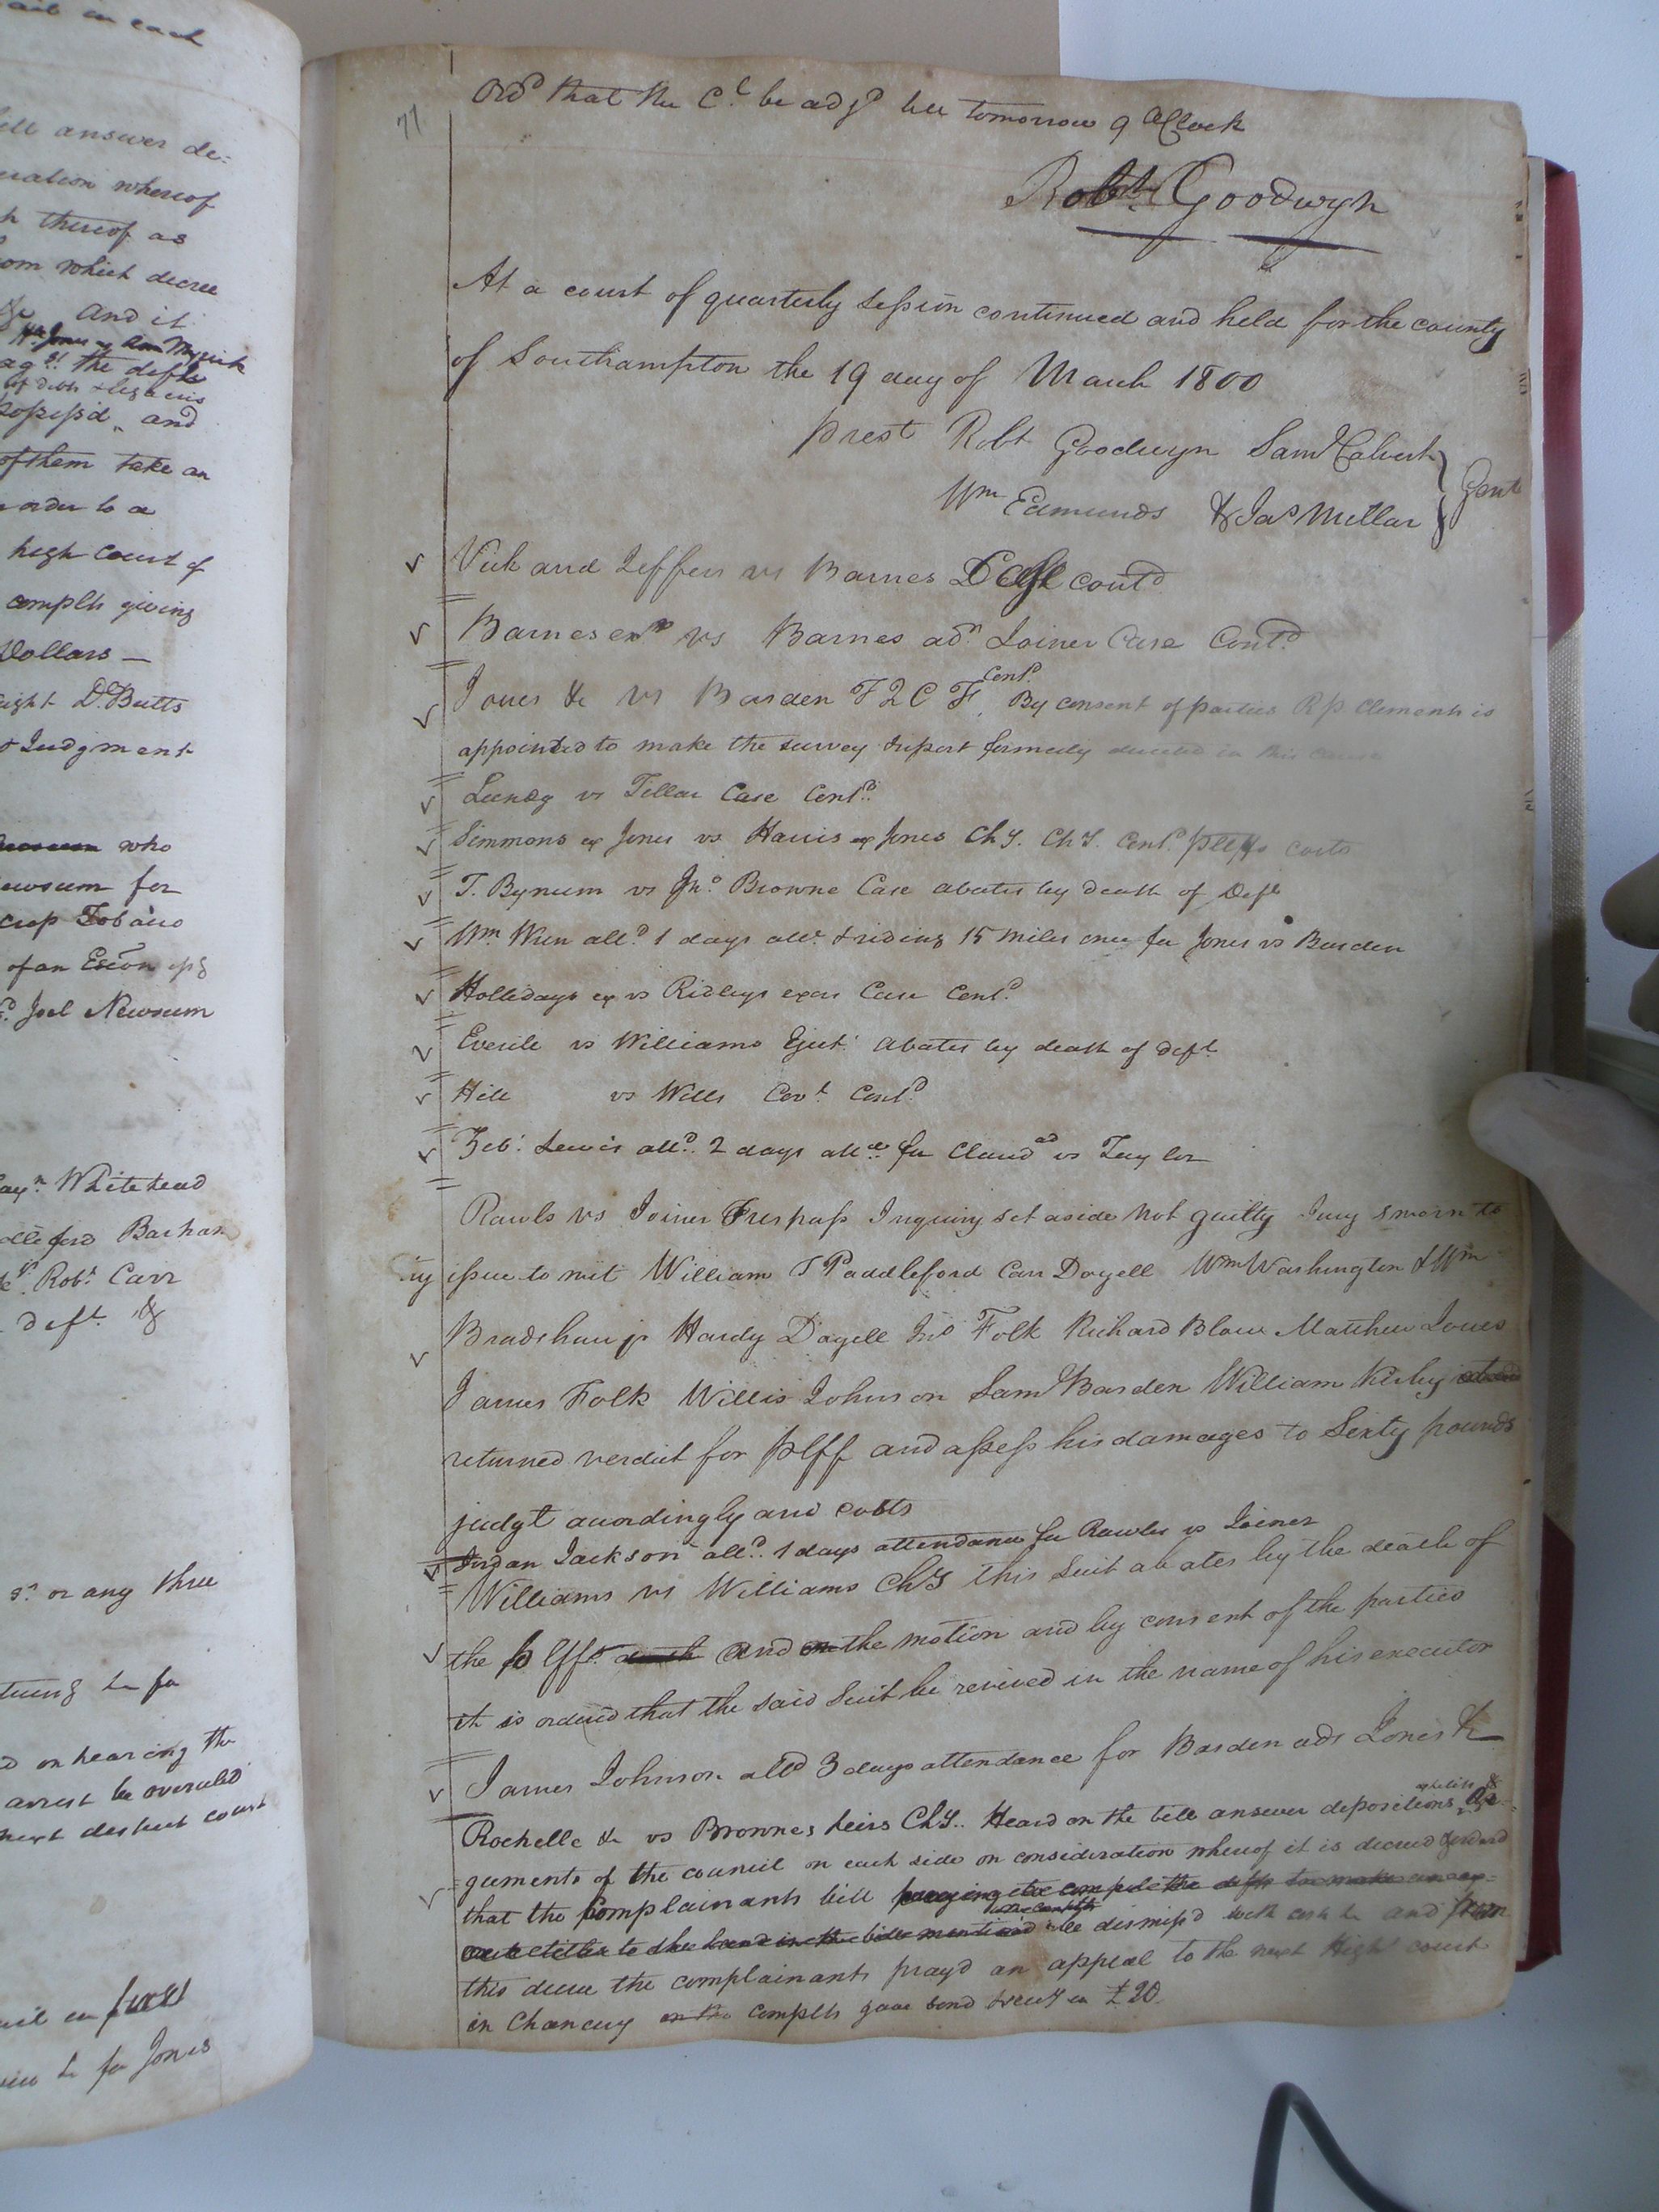 ail in each
ill answer de=
eration whereof
h thereof as
om which decree
&c And it
agst the defts
of debts & legacies
possess'd and
of them take an
order to a
high Court of
complts giving
Dollars —
D. Butts
& Judgment
who
ewsum for
crop Tobacco
of an Exċon
Joel Newsum
Whitehead
Barham
Robt Carr
deft &
or any three
on hearing the
arrest be overuled
next district court
for Jones
77
Ordd that the Ct be adjd till tomorrow 9 oClock
Robt Goodwyn
At a court of quarterly session continued and held for the county
of Southampton the 19 day of March 1800
prest Robt Goodwyn Saml Calvert
Wm Edmunds & Jas Millar } Gent
Vick and Jeffers vs Barnes Case contd
Barnes exr vs Barnes adr Joiner Case Contd
Jones &c vs Barden Contd. By consent of parties R p Clements is
appointed to make the survey & report formerly directed in this cause
Lundy vs Tellar Case Contd
Simmons ex Jones vs Harris ex Jones ChY. ChY. Contd plffs costs
T. Bynum vs Jno Browne Case abates by death of Deft
Wm Wren alld 1 days atte & riding 15 miles once for Jones vs Barden
Hollidays ex vs Ridleys exors Case Contd
vs Williams Ejectt abates by death of deft
Hill vs Wills Covt Contd
Zeb: Lewis alld 2 days attce for Claud ad vs Taylor
Rawls vs Joiner Trespass Inquiry set aside not guilty Jury sworn to
issue to wit William T Paddleford Carr Doyell Wm Washington & Wm
Bradshaw jr Hardy Doyell Jno Folk Richard Blow Matthew Jones
James Folk Willis Johnson Saml Barden William Kirby
returned verdict for plff and assess his damages to Sixty pounds
judgt accordingly and costs
Jordan Jackson alld 1 days attendance for Rawls vs Joiner
Williams vs Williams ChY this Suit abates by the death of
the plff and on the motion and by consent of the parties
it is ordered that the said Suit be revived in the name of his executor
James Johnson alld 3 days attendance for Barden ads Jones &c
Rochelle &c vs Brownes heirs ChY. Heard on the bill answer depositions exhibits & Ar=
guments of the council on each side on consideration whereof it is decreed & ordered
that the Complainants bill praying to compel the defts to make an ex=
title to the land in the bill mentiond be dismiss'd with costs &c and from
this decree the complainants pray'd an appeal to the next High court
in Chancery on the complts gave bond & secy in £20.